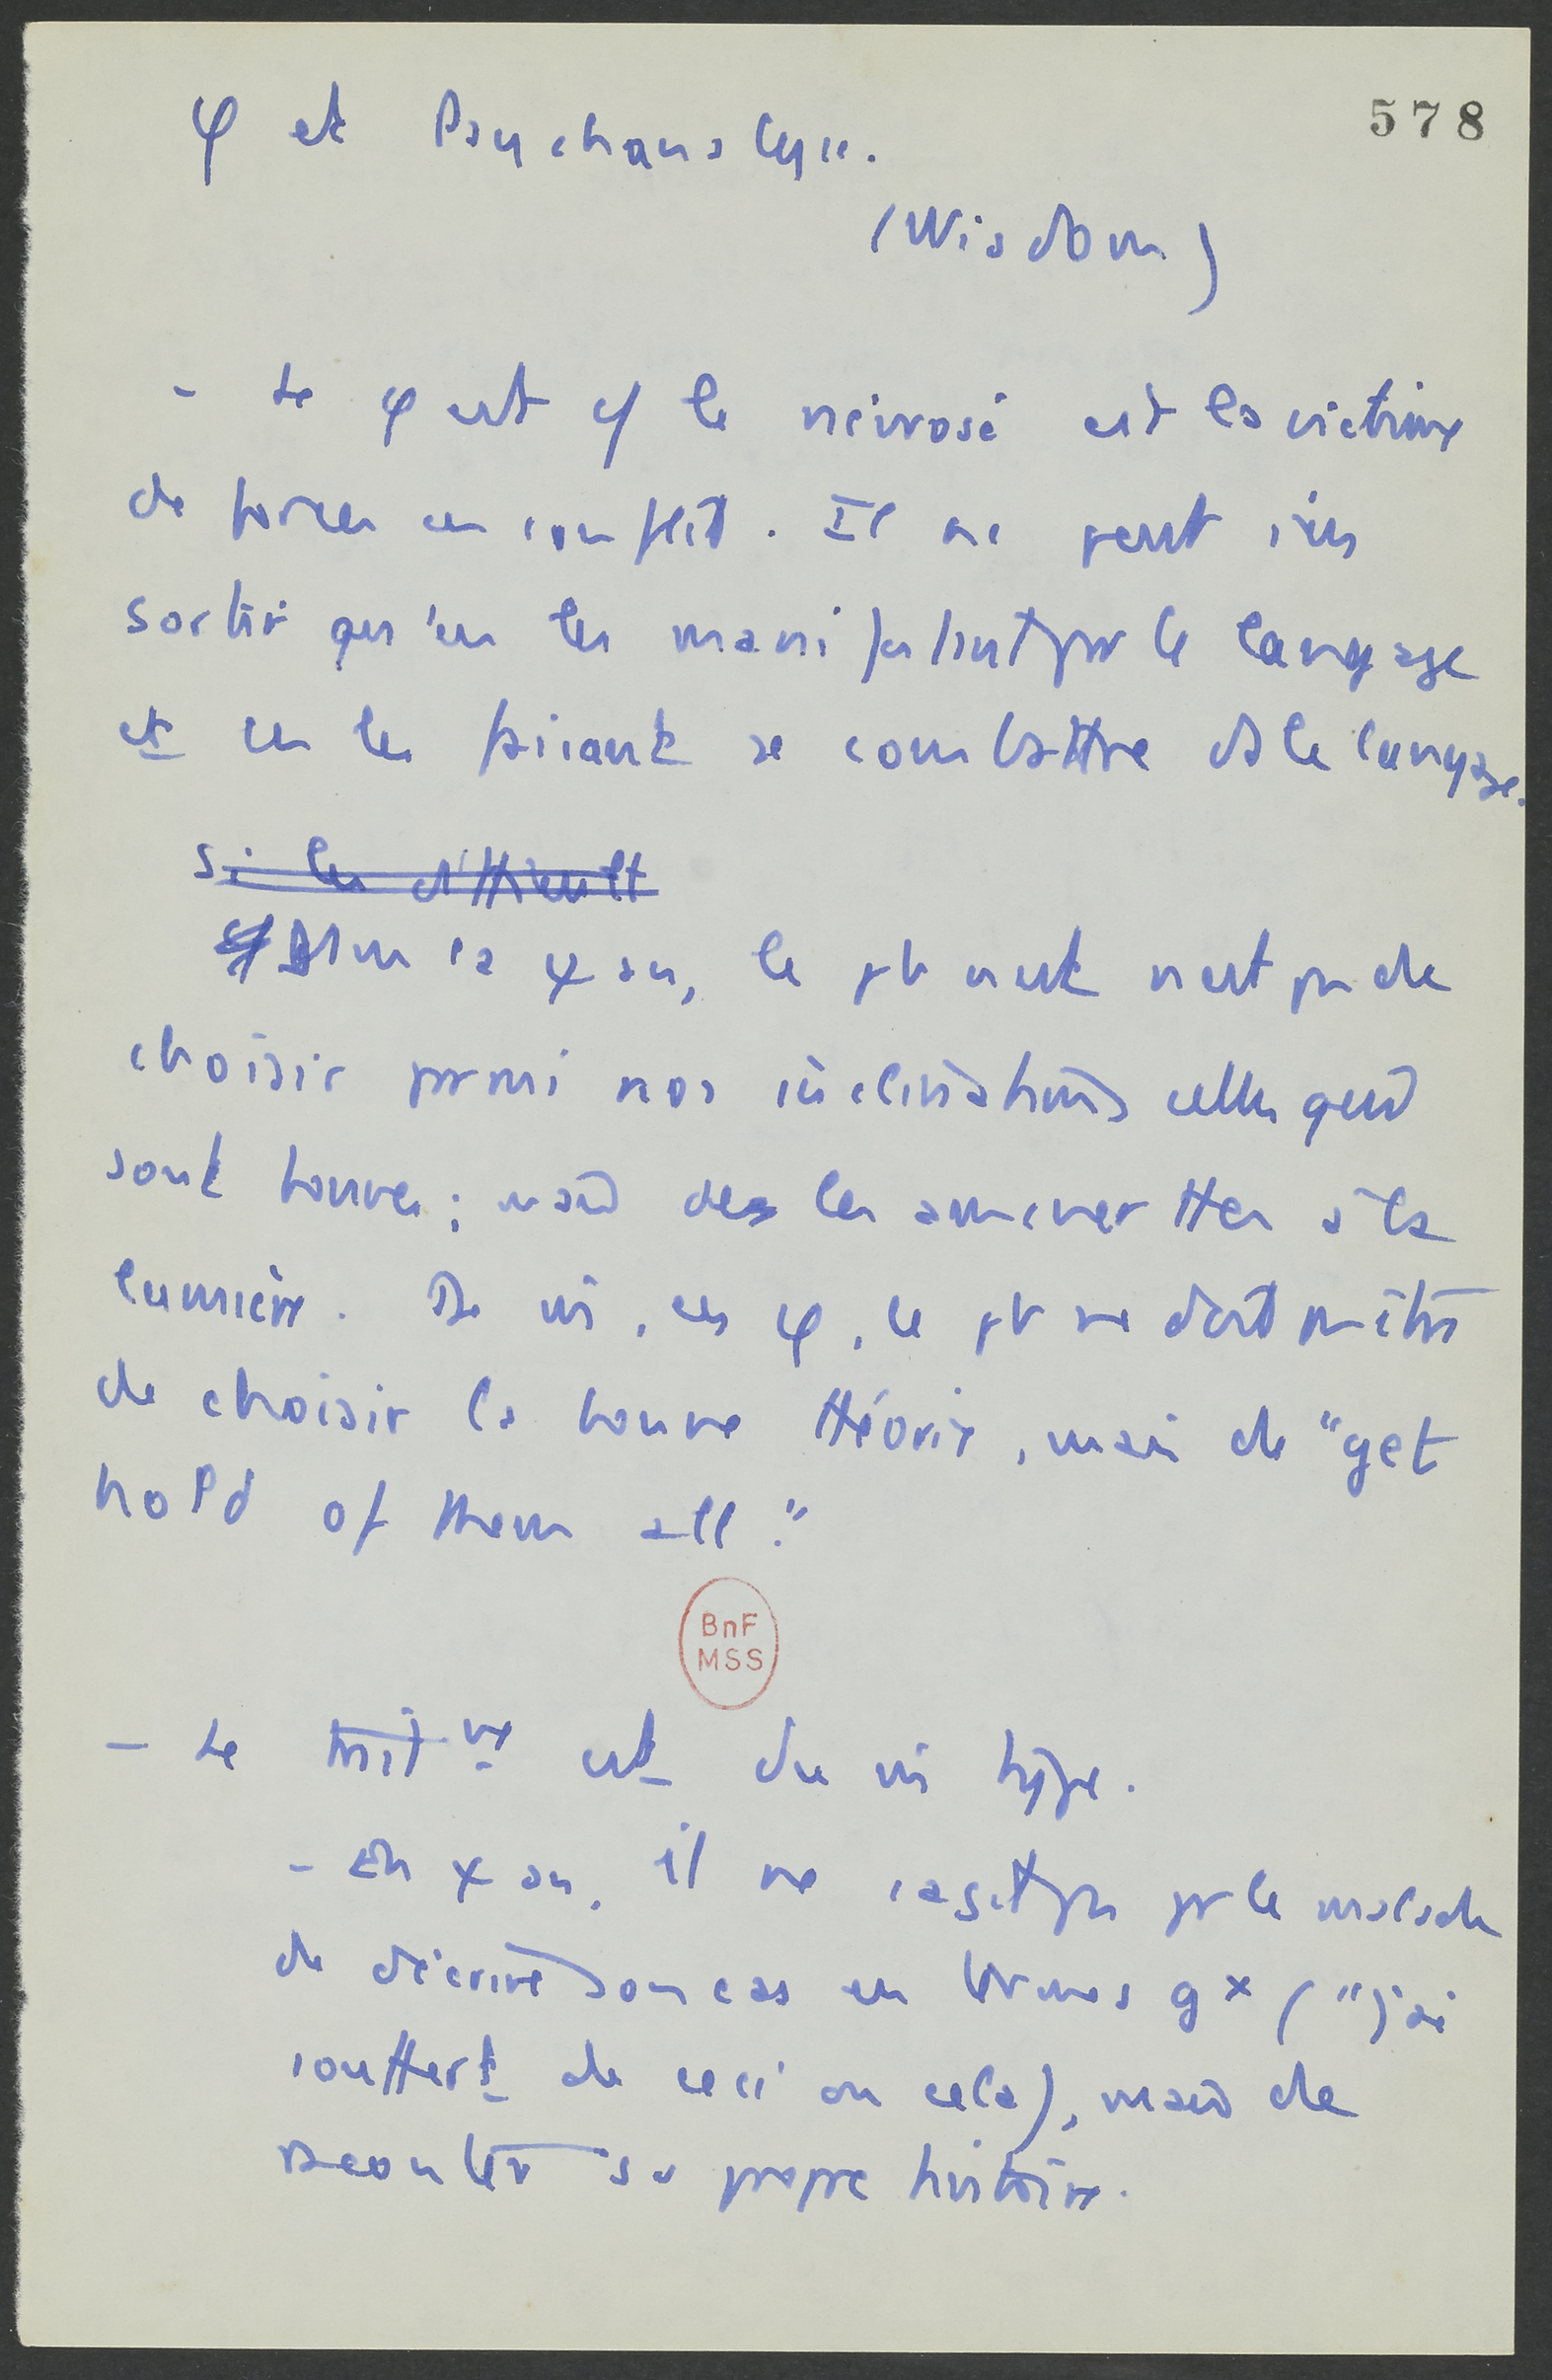 578
φ et Psychanalyse.
(Wisdom)
- Le φ est cf le névrosé est la victime
de forces en conflit. Il ne peut s'en
sortir qu'en les manipulant par le langage
et en les faisant se combattre ds le langage.
Si les
Dans la ψ an, le pb n'est n'est pas de
choisir parmi nos inclinations celles qui
sont bonnes ; mais de les amener ttes à la
lumière. De m̂, en φ, le pb ne doit pas être
de choisir la bonne théorie, mais de "get
hold of them all."
BnF
MSS
- Le trait^nt est du m̂ type.
- En ψ an, il ne s'agit pas pr le malade
de décrire son cas en termes gx ("j'ai
souffert de ceci ou cela), mais de
raconter sa propre histoire.